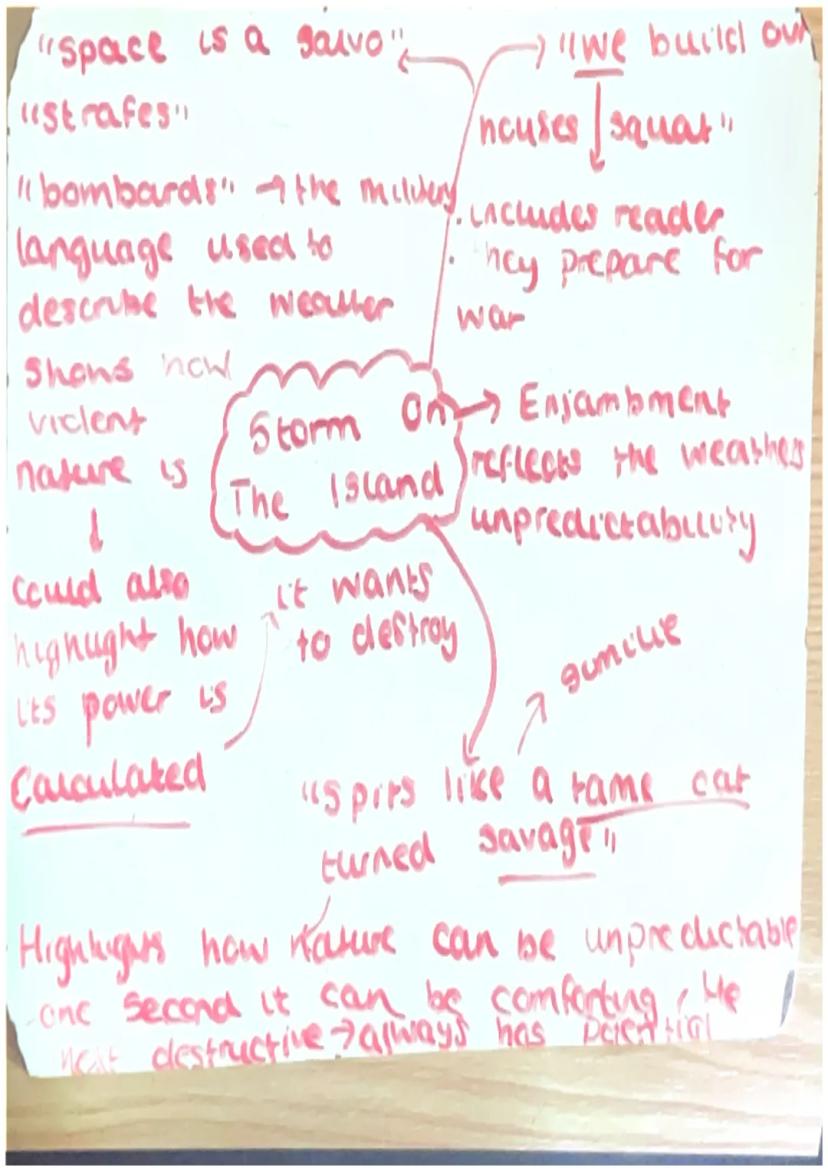 "space is a salvo"
"strafes"
"bombards" → the military
language used to
describe the weather
shows how
violent
nature is
↓
could also
highlight how
its power is
Calculated
it wants
to destroy
"we build our
houses squat"
· includes reader
· they prepare for
war
Storm On
The Island
→ Enjambment
reflects the weathers
unpredictability
simile
"spits like a tame cat
turned savage"
Highlights how nature can be unpredictable
one second it can be comforting, the
next destructive → always has potential